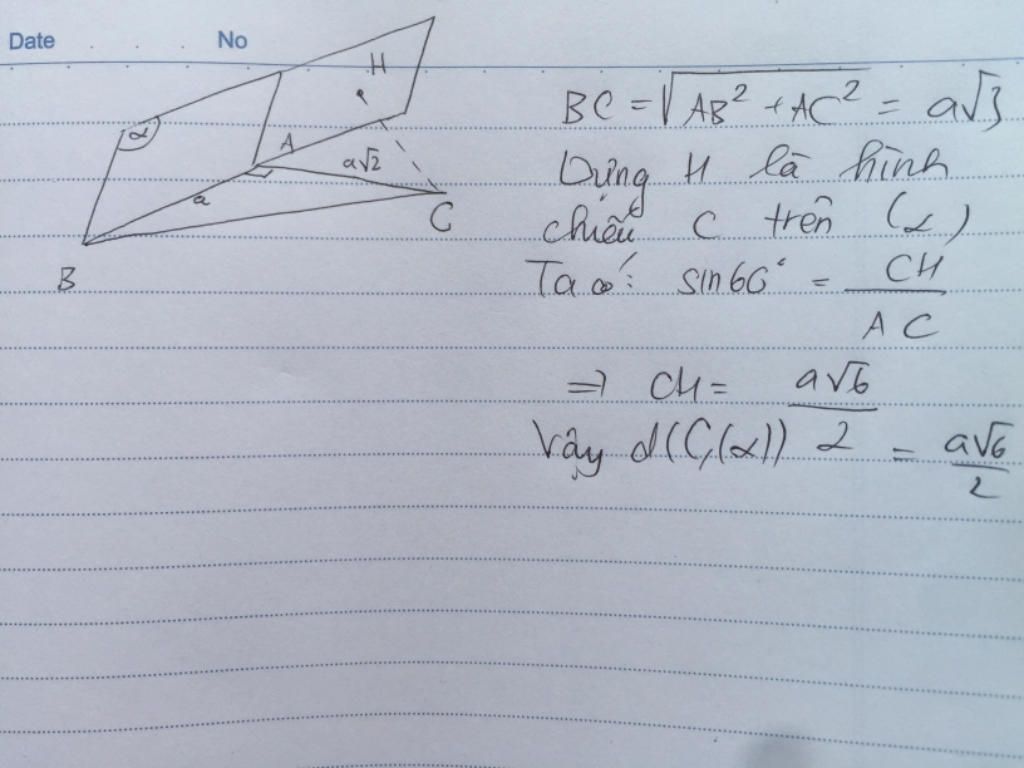 Date No
α
H
A
a√2
a
C
B
BC = √AB² + AC² = a√3
Dựng H là hình
chiếu C trên (α)
Ta có: sin60° = CH / AC
⇒ CH = a√6 / 2
Vậy d(C,(α)) = a√6 / 2